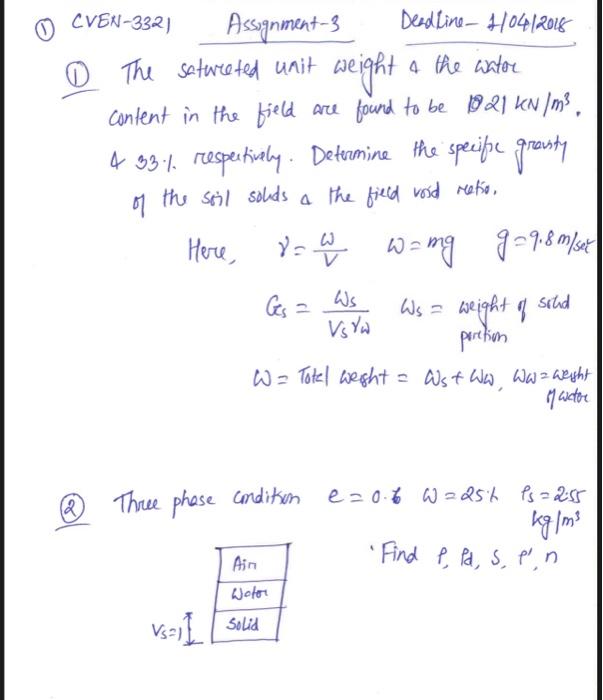 ① CVEN-3321 Assignment-3 Deadline- 1/04/2018
① The saturated unit weight & the water
content in the field are found to be 1821 KN/m³,
& 33%. respectively. Determine the specific gravity
of the soil solids & the field void ratio.
Here, γ = W/V W = mg g = 9.8 m/sec²
Gs = Ws/Vsγw Ws = weight of solid
portion
W = Total weight = Ws + Ww, Ww = weight
of water
② Three phase condition e = 0.6 W = 25% ρs = 2.55
kg/m³
Find ρ, ρd, S, ρ', n
Air
Water
Vs=1 Solid